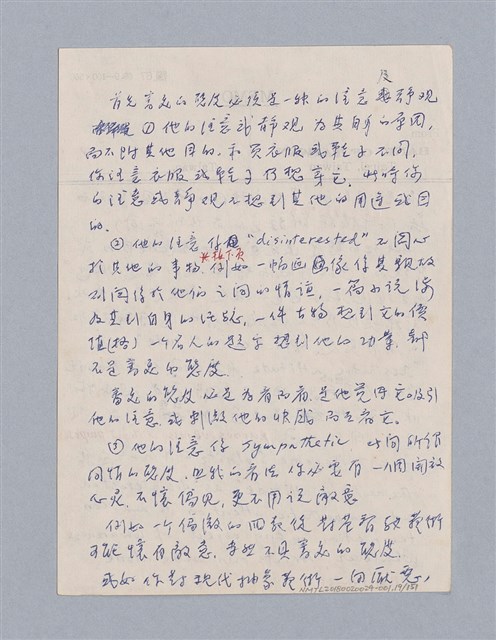 及
首先審美的態度必須是一種的注意與靜观
① 他的注意或靜观为其自身的原因,
而不附其他目的. 和买衣服或鞋子不同,
你注意衣服或鞋子仍想穿它. 此時你
的注意或靜观不想到其他的用途或目
的.
② 他的注意係 "disinterested" 不関心
於其他的事物. 例如一幅画像你
到関係於他们之间的情誼, 一篇小说
及至到自身的, 一件古物想到它的價
值(格) 一个名人的題字想到他的功業. 都
不是審美的態度.
審美的態度 看而看. 是他覚得它吸引
他的注意. 或刺激他的快感 而看它.
③ 他的注意係 Sympathetic 此间所谓
同情的態度. 但我的看法 你必要有一個開放
心灵. 不懷偏見, 更不用说敵意
例如一个偏激的回教徒對基督教藝術
可能懷有敵意. 当然不具審美的態度.
或如你對現代抽象藝術一向厭惡,
NMTL20180020024-001,19/151